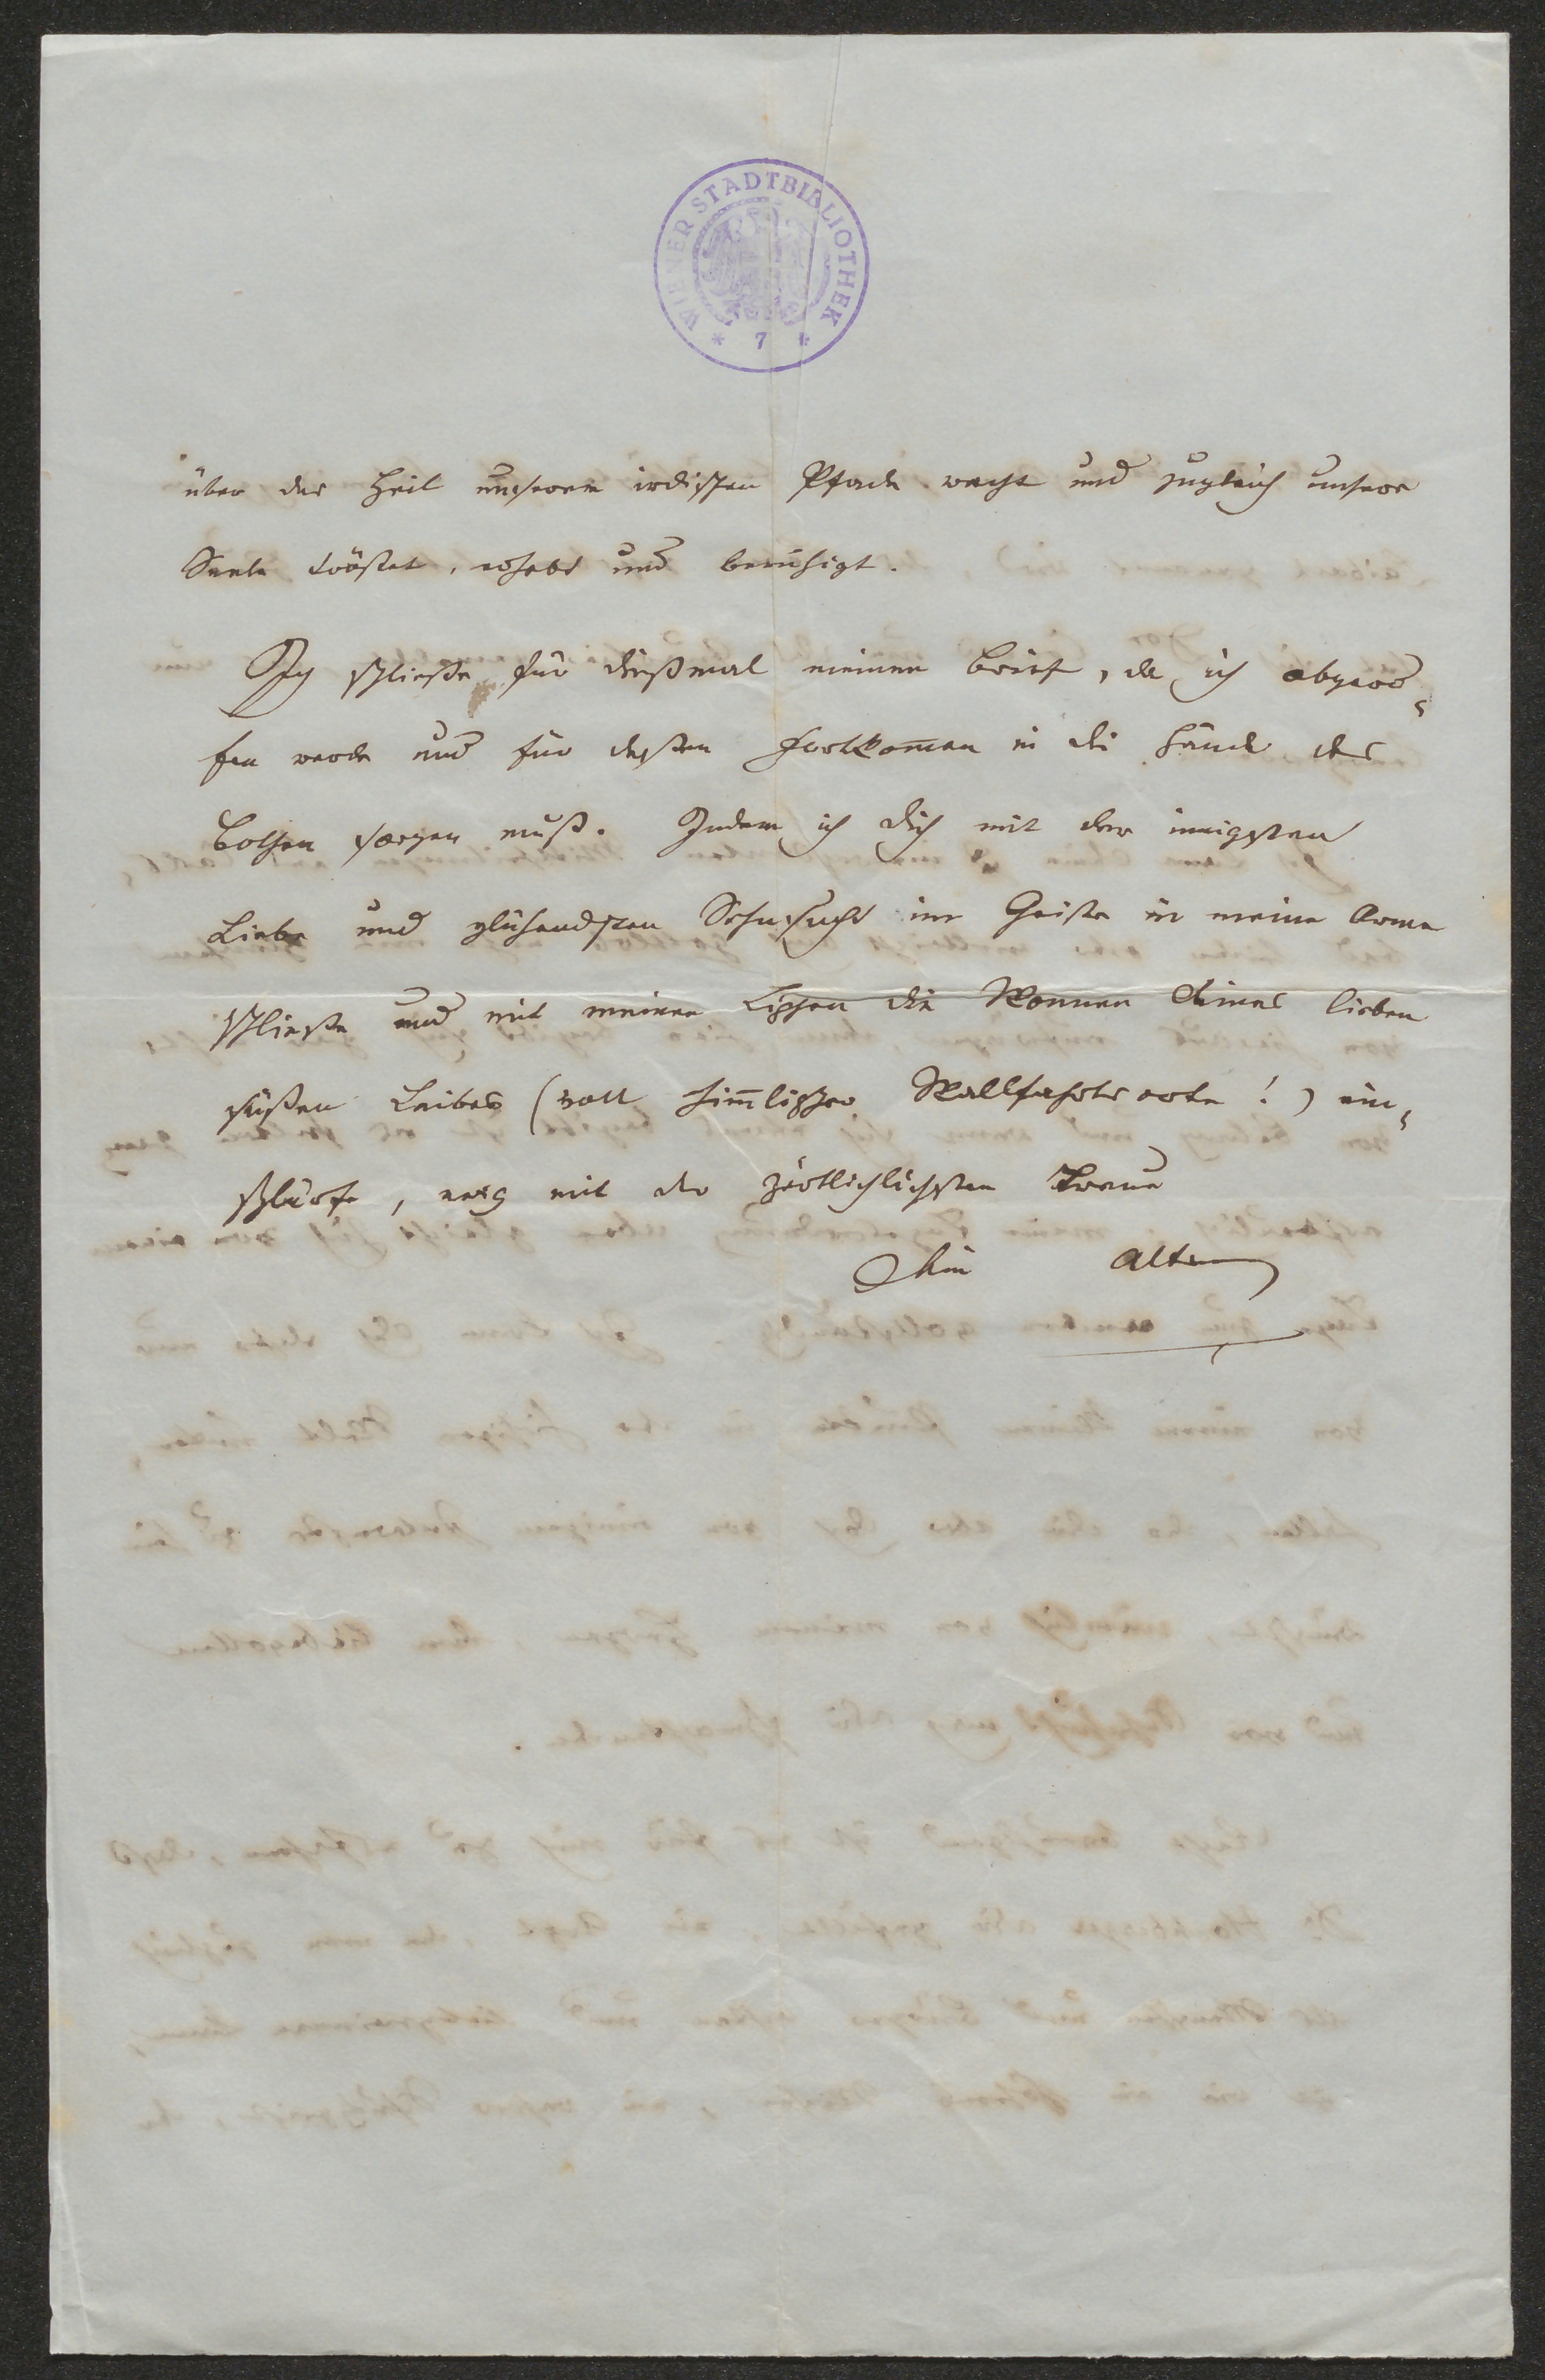 WIENER STADTBIBLIOTHEK
* 7 *
über das Heil unserer irdischen Pfade wacht und zugleich unsere
Seele tröstet, erhebt und beruhigt.
Ich schließe für dießmal meinen Brief, da ich abgerufen
werde und für dessen Fortkom̄en in die Hände des
Bothen sorgen muß. Indem ich Dich mit der innigsten
Liebe und glühendsten Sehnsucht im Geiste in meine Arme
schließe und mit meinen Lippen die Wonnen Deines lieben
süßen Leibes (voll him̄lischer Wallfahrtsorte!) ein-
schlürfe, mit der zärtlichlichsten Treue
Dein Alter